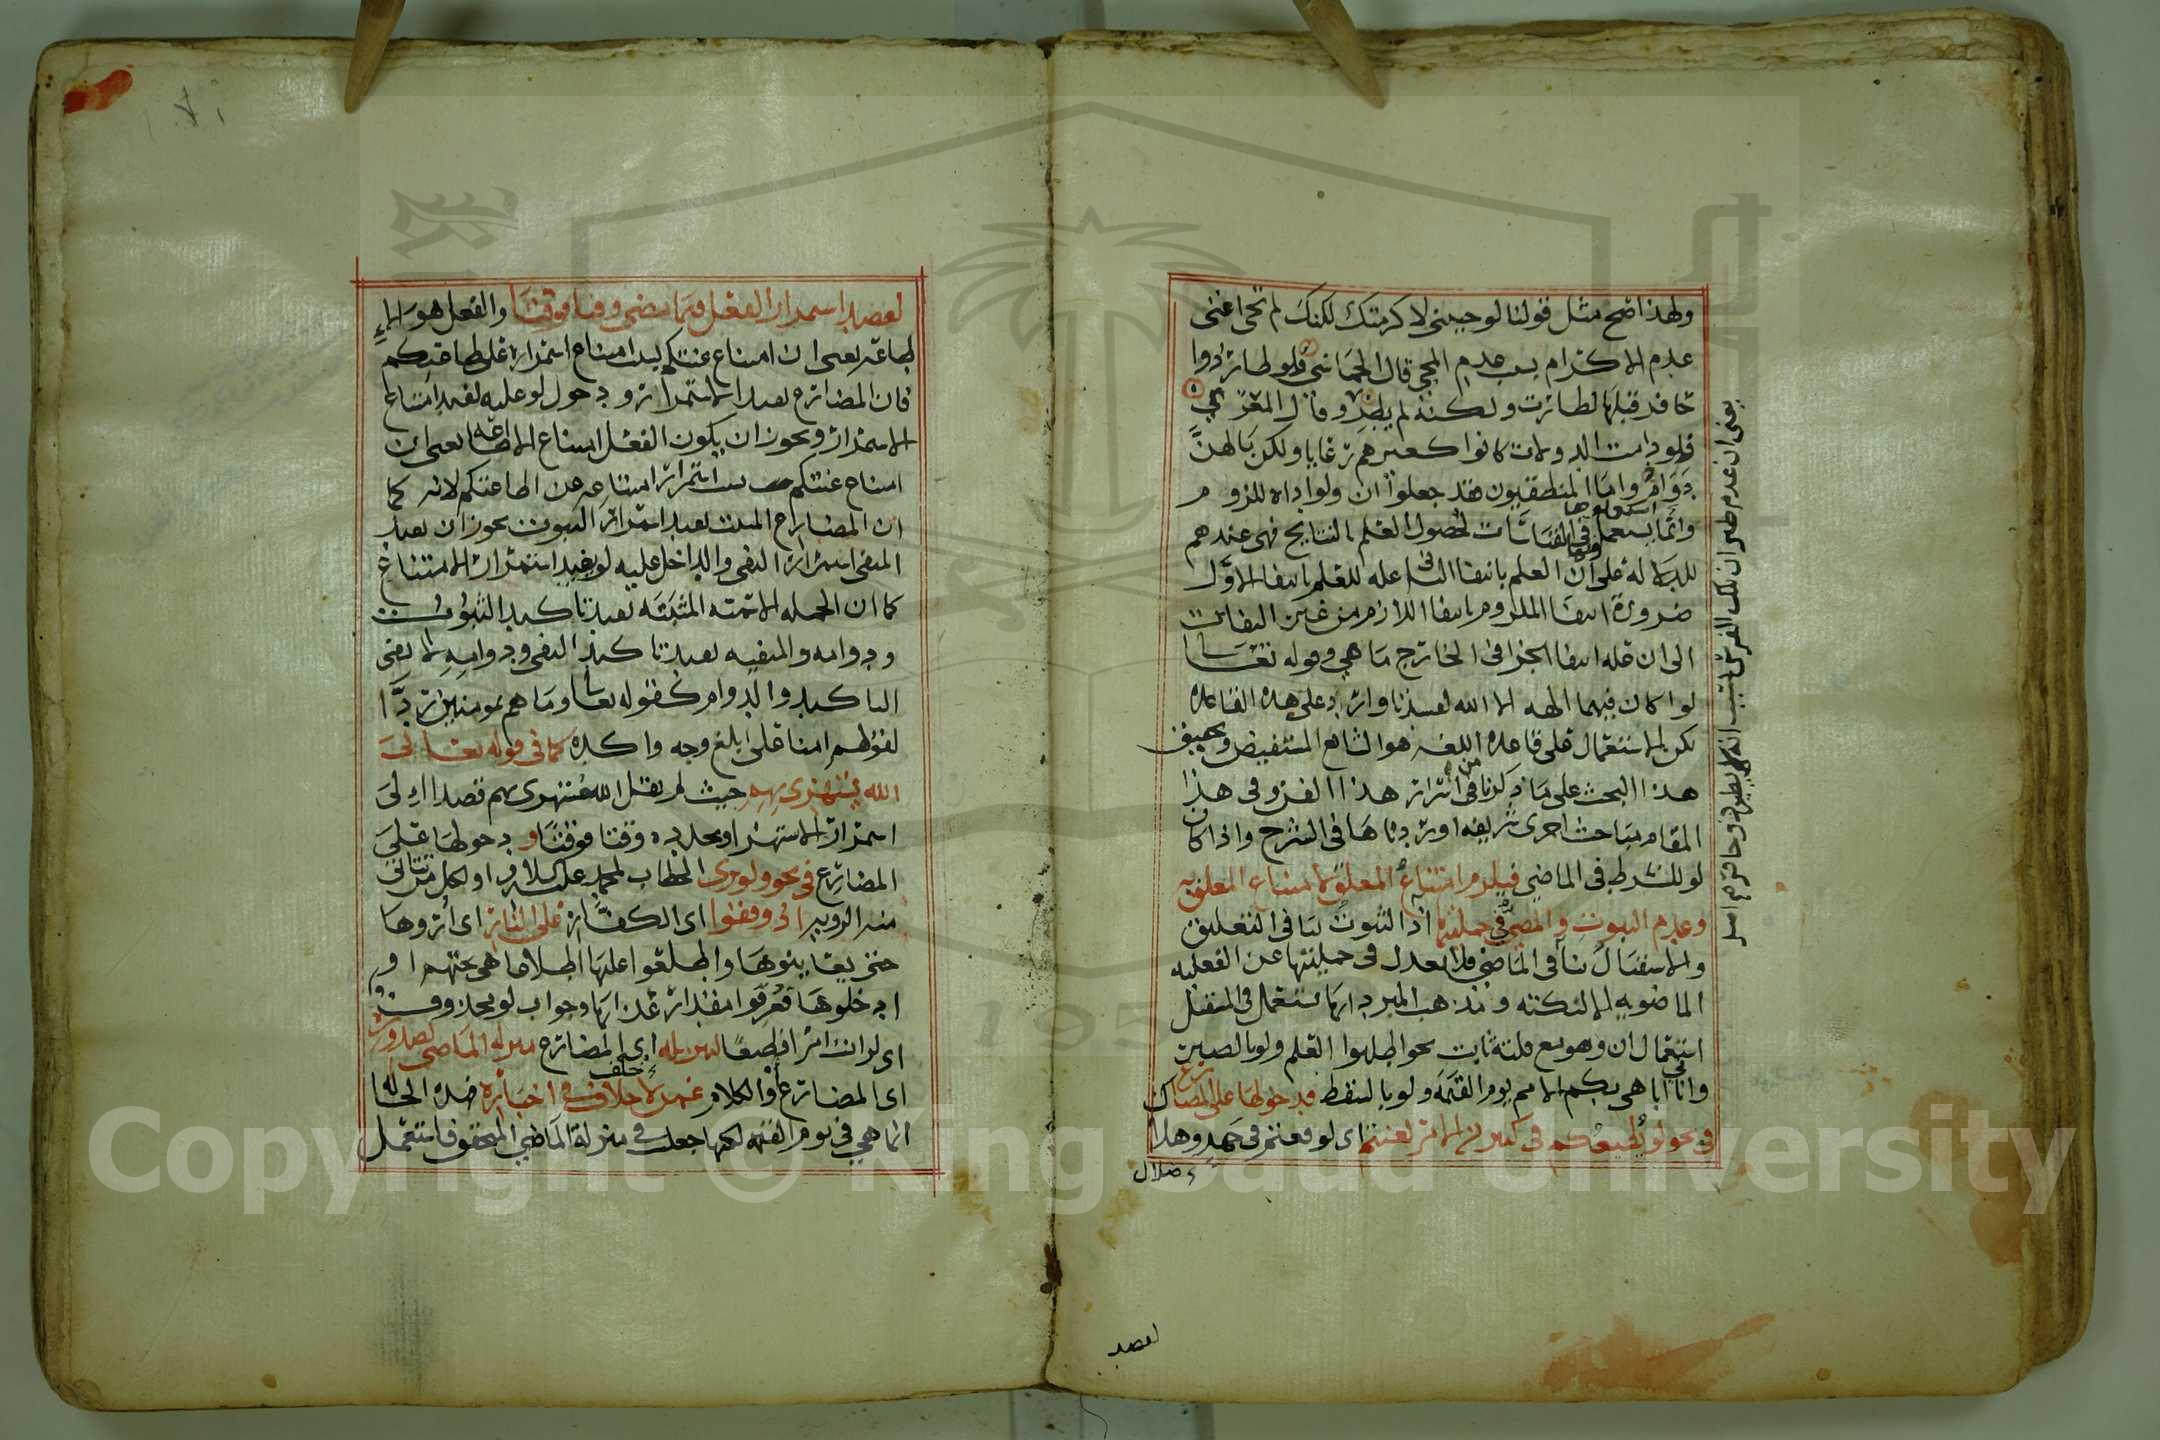 ولهذا صح مثل قولنا لو جيتنى لاكرمتك لكنك لم تجى اعنى
عدم الاكرام بسبب عدم المجى قال الحماسي ولو طار ذوا
حافر قبلها لطارت ولكنه لم يطر وقال المعري
فلو دامت الدولات كانوا كغيرهم رعايا ولكن ما لهن
دوام واما المنطقيون فقد جعلوا ان ولو اداه للزوم
وانما يستعملونها فى القياسات لحصول العلم بالنتايج فهى عندهم
للدلاله على ان العلم بانتفا الثانى عله للعلم بانتفا الاول
ضرورة انتفا الملزوم بانتفا اللازم من غير التفات
الى ان عله انتفا الجزا فى الخارج ما هي وقوله تعالى
لو كان فيهما الهه الا الله لفسدتا وارد على هذه القاعده
لكن الاستعمال على قاعده اللغه هو الشايع المستفيض وتحقيق
هذا البحث على ما ذكرنا من اسرار هذا الفن وفى هذا
المقام مباحث اخرى شريفه اوردناها فى الشرح واذا كان
لو للشرط فى الماضى فيلزم امتناع المعلق لامتناع المعلق به
وعدم الثبوت والمضى فى جملتيها اذ الثبوت ينافى التعليق
والاستقبال ينافى الماضى فلا يعدل فى جملتيها عن الفعليه
الماضويه الا لنكته ومذهب المبرد انها تستعمل فى المستقبل
استعمال ان وهو مع قلته ثابت نحو اطلبوا العلم ولو بالصين
وانى اباهى بكم الامم يوم القيمه ولو بالسقط فدخولها على المضارع
فى نحو لو يطيعكم فى كثير من الامر لعنتم اى لوقعتم فى جهد وهلاك
وضلال
لقصد
يعنى ان عدم طيران تلك الفرس بسبب انه لم يطير ذو حافر قبلها
لقصد استمرار الفعل فيما مضى وقتا فوقتا والفعل هو الا
طاعة يعنى ان امتناع عنتكم بسبب امتناع استمراره على طاعتكم
فان المضارع يفيد الاستمرار ودخول لو عليه يفيد امتناع
الاستمرار ويجوز ان يكون الفعل امتناع الاطاعه يعنى ان
امتناع عنتكم بسبب استمرار امتناعه عن اطاعتكم لانه كما
ان المضارع المثبت يفيد استمرار الثبوت يجوز ان يفيد
المنفى استمرار النفى والداخل عليه لو يفيد استمرار الامتناع
كما ان الجمله الاسميه المثبته يفيد تاكيد الثبوت
ودوامه والمنفيه يفيد تاكيد النفى ودوامه لا نفى
التاكيد والدوام كقوله تعالى وما هم بمومنين ردا
لقولهم امنا على ابلغ وجه واكده كما فى قوله تعالى
الله يستهزى بهم حيث لم يقل الله مستهزى بهم قصدا الى
استمرار الاستهزا وتجدده وقتا فوقتا ودخولها على
المضارع فى نحو ولو ترى الخطاب لمحمد عليه السلام او لكل من تتاتى
منه الرويه اذ وقفوا اى الكفار على النار اى اروها
حتى يعاينوها واطلعوا عليها اطلاعا هى تحتهم او
ادخلوها فعرفوا مقدار عذابها وجواب لو محذوف
اى لرايت امرا فظيعا لتنزيله اى المضارع منزله الماضى لصدوره
اى المضارع او الكلام عمن لا خلاف فى اخباره فهذه الحاله
انما هي فى يوم القيمه لكنها جعلت فى منزلة الماضي المحقق فاستعمل